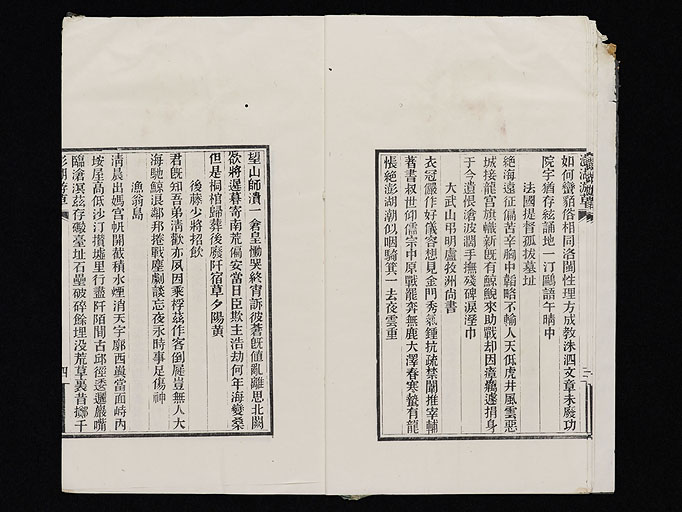 澎湖游草
如何蠻貊俗相同洛閩性理方成教洙泗文章未廢功
院宇猶存絃誦地一汀鷗語午晴中
法國提督孤拔墓址
絶海遠征偏苦辛胸中韜略不輸人天低虎井風雲惡
城接龍宮旗幟新既有鯨鯢來助戰却因瘴癘遽捐身
于今遺恨滄波濶手撫殘碑淚溼巾
大武山弔明盧牧洲尚書
衣冠儼作好儀容想見金門秀氣鍾抗疏禁闈推宰輔
著書叔世仰儒宗中原戰罷奔無鹿大澤春寒蟄有龍
悵絶澎湖潮似咽騎箕一去夜雲重
望山師潰一倉皇慟哭終宵訴彼蒼既値亂離思北闕
欲將遲暮寄南荒偏安當日臣欺主浩劫何年海變桑
但是桐棺歸葬後廢阡宿草夕陽黃
後藤少將招飲
君既知吾弟淸歡亦夙因乘桴茲作客倒屣豈無人大
海馳鯨浪鄰邦捲戰塵劇談忘夜永時事足傷神
漁翁島
淸晨出媽宮帆開截積水煙消天宇廓西嶼當面峙內
垵屋高低沙汀攢墟里行盡阡陌間古邱徑逶邐嚴嘴
臨滄溟茲存礮臺址石壘破碎餘埋没荒草裏昔擲千
澎湖游草
四